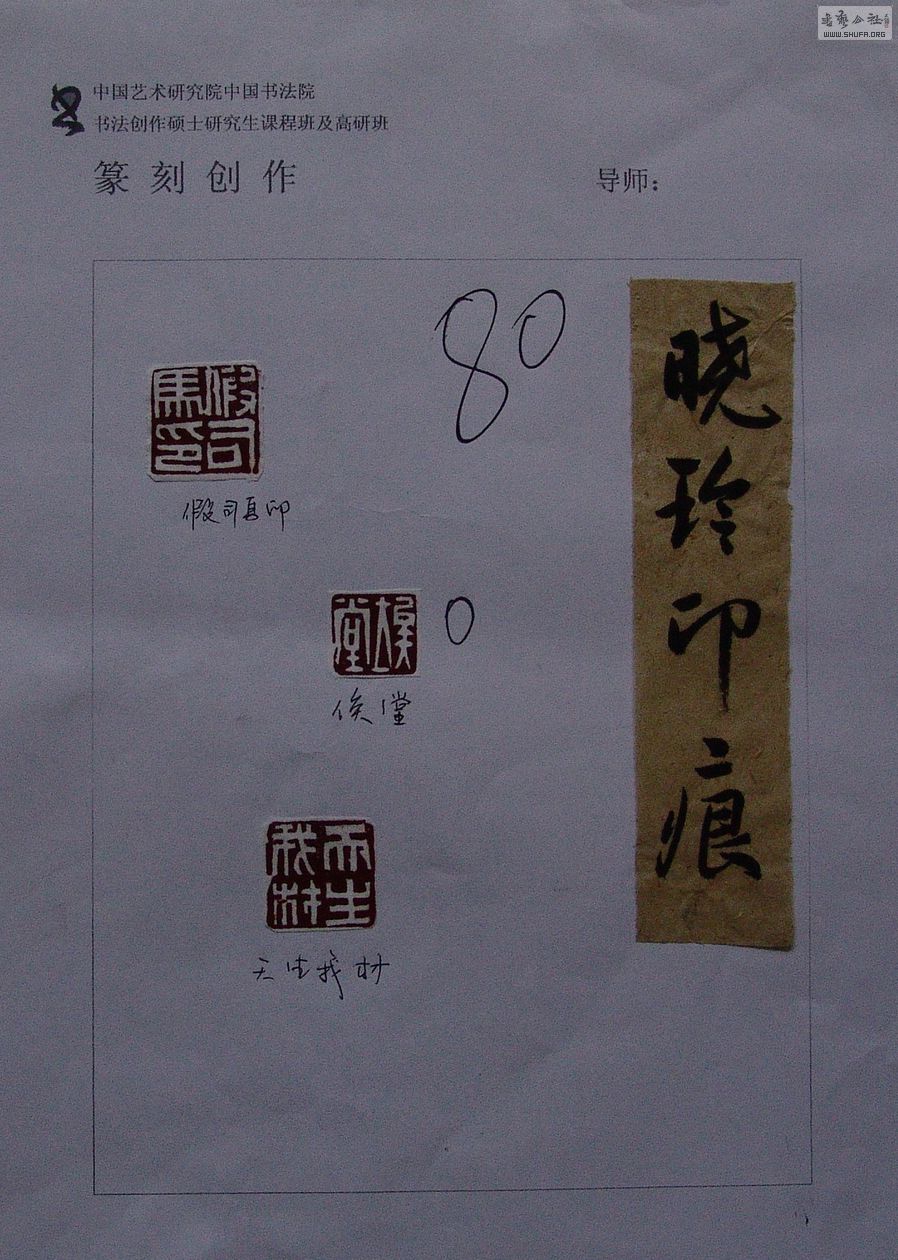 书艺公社
WWW.SHUFA.ORG
中国艺术研究院中国书法院
书法创作硕士研究生课程班及高研班
篆刻创作
导师：
80
晓玲印痕
假司馬印
假司马印
堂
0
俟堂
天生我材
天生我材